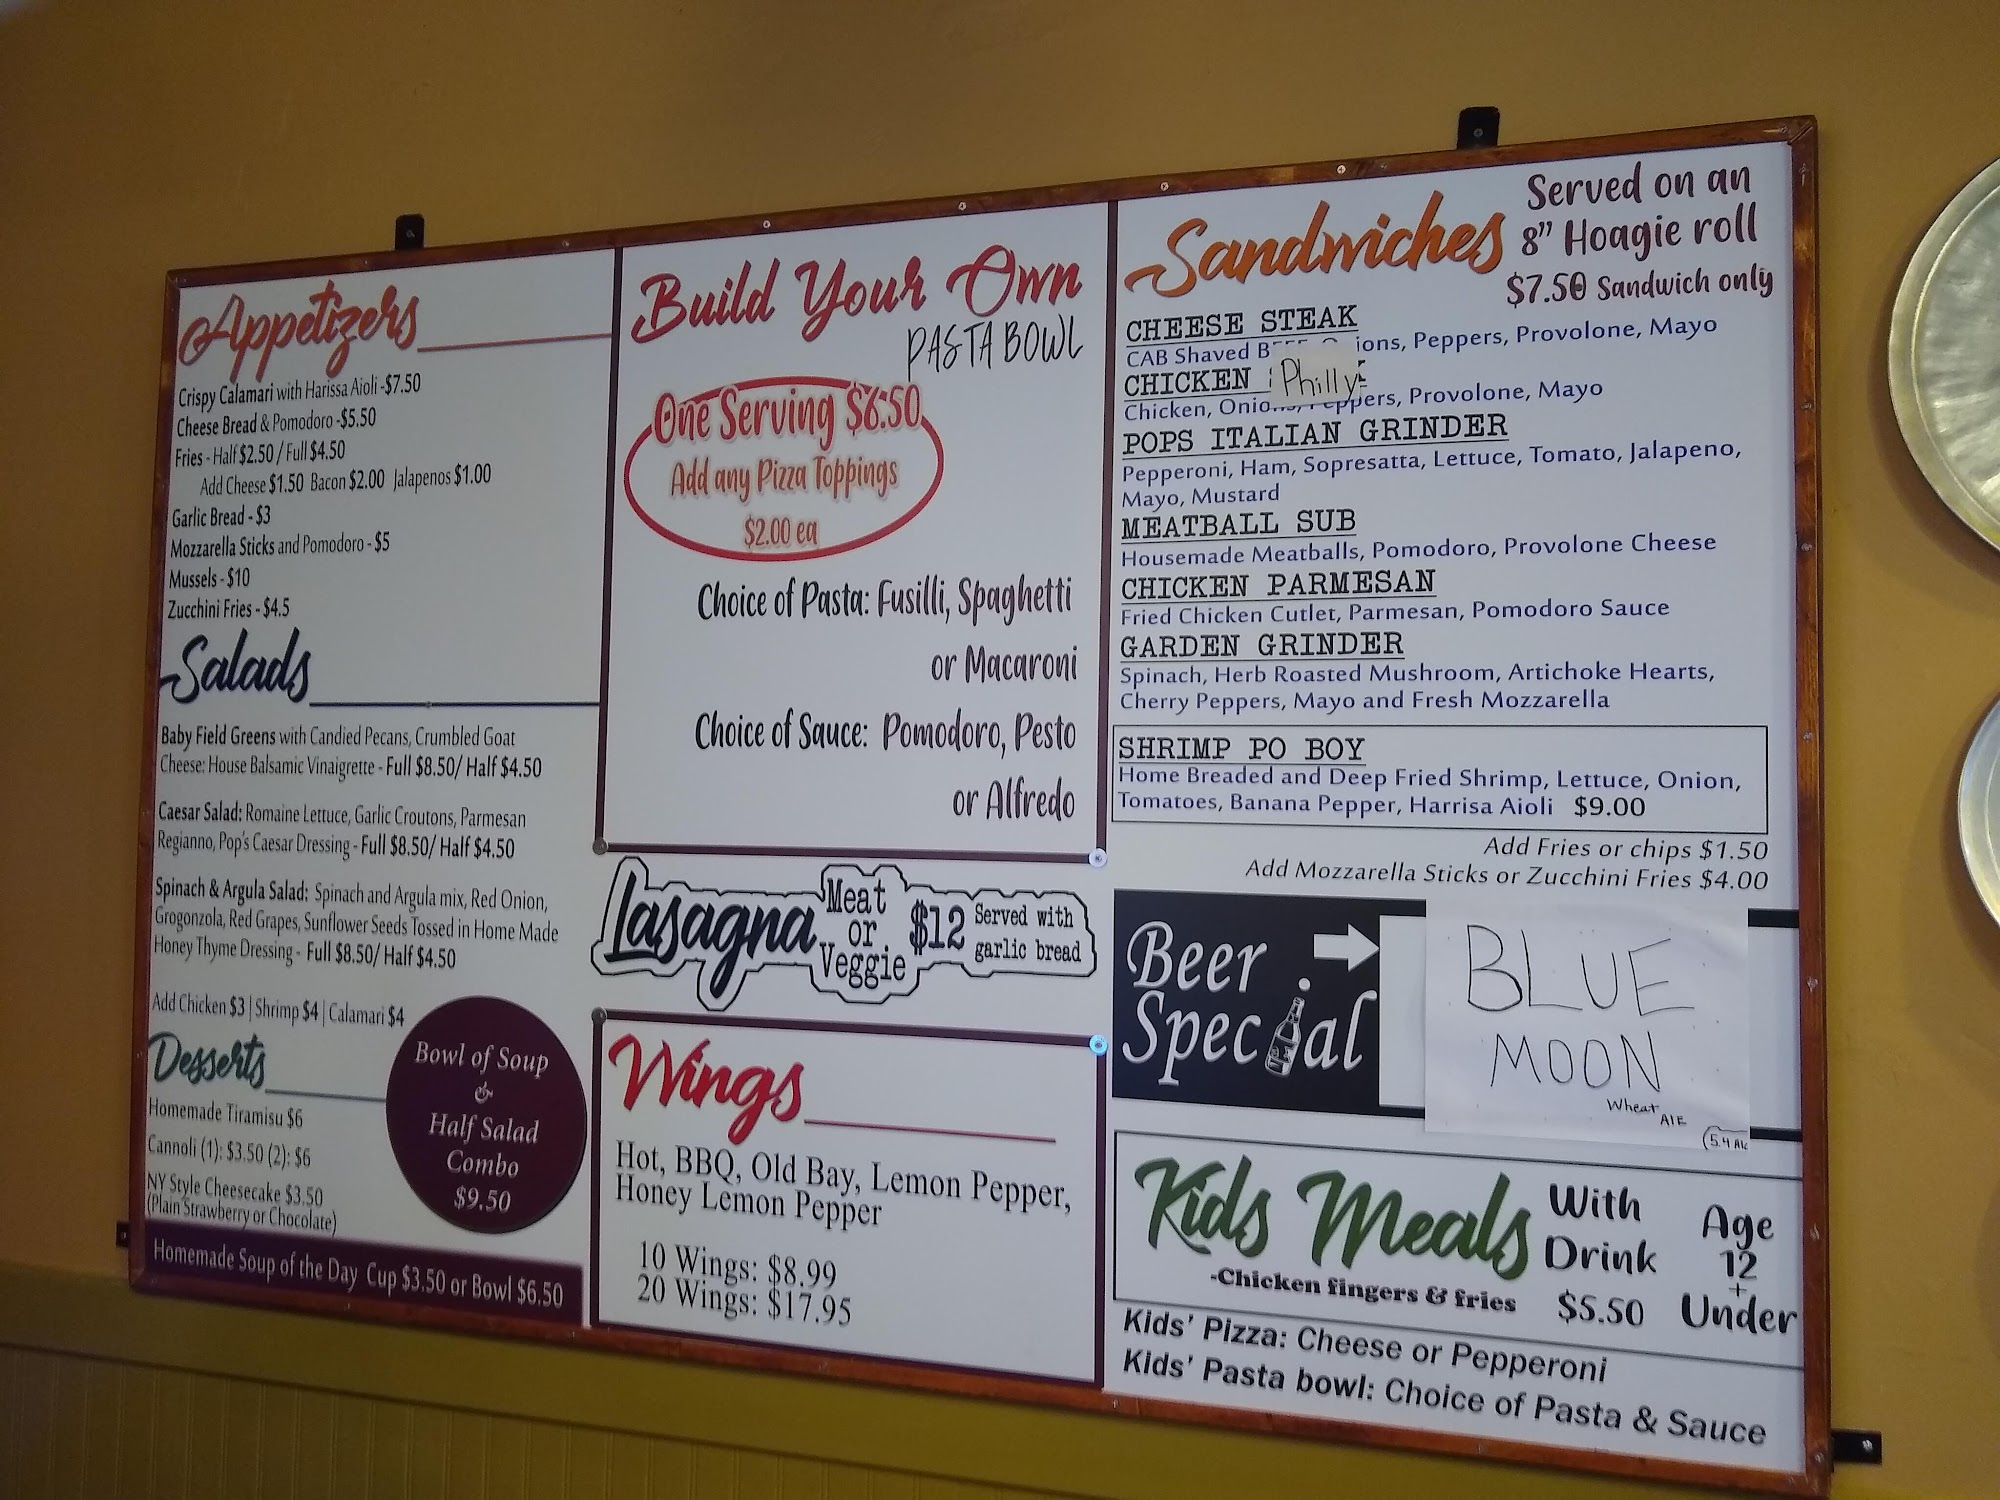 Appetizers
Crispy Calamari with Harissa Aioli -$7.50
Cheese Bread & Pomodoro -$5.50
Fries - Half $2.50 / Full $4.50
Add Cheese $1.50 Bacon $2.00 Jalapenos $1.00
Garlic Bread - $3
Mozzarella Sticks and Pomodoro - $5
Mussels - $10
Zucchini Fries - $4.5
Salads
Baby Field Greens with Candied Pecans, Crumbled Goat
Cheese: House Balsamic Vinaigrette - Full $8.50/ Half $4.50
Caesar Salad: Romaine Lettuce, Garlic Croutons, Parmesan
Regianno, Pop's Caesar Dressing - Full $8.50/ Half $4.50
Spinach & Argula Salad: Spinach and Argula mix, Red Onion,
Grogonzola, Red Grapes, Sunflower Seeds Tossed in Home Made
Honey Thyme Dressing - Full $8.50/ Half $4.50
Add Chicken $3 | Shrimp $4 | Calamari $4
Desserts
Homemade Tiramisu $6
Cannoli (1): $3.50 (2): $6
NY Style Cheesecake $3.50
(Plain Strawberry or Chocolate)
Bowl of Soup
&
Half Salad
Combo
$9.50
Homemade Soup of the Day Cup $3.50 or Bowl $6.50
Build Your Own
PASTA BOWL
One Serving $6.50
Add any Pizza Toppings
$2.00 ea
Choice of Pasta: Fusilli, Spaghetti
or Macaroni
Choice of Sauce: Pomodoro, Pesto
or Alfredo
Lasagna Meat or Veggie $12 Served with garlic bread
Wings
Hot, BBQ, Old Bay, Lemon Pepper,
Honey Lemon Pepper
10 Wings: $8.99
20 Wings: $17.95
Sandwiches
Served on an
8” Hoagie roll
$7.50 Sandwich only
CHEESE STEAK
CAB Shaved Peppers, Provolone, Mayo
CHICKEN Philly
Chicken, Provolone, Mayo
POPS ITALIAN GRINDER
Pepperoni, Ham, Sopresatta, Lettuce, Tomato, Jalapeno,
Mayo, Mustard
MEATBALL SUB
Housemade Meatballs, Pomodoro, Provolone Cheese
CHICKEN PARMESAN
Fried Chicken Cutlet, Parmesan, Pomodoro Sauce
GARDEN GRINDER
Spinach, Herb Roasted Mushroom, Artichoke Hearts,
Cherry Peppers, Mayo and Fresh Mozzarella
SHRIMP PO BOY
Home Breaded and Deep Fried Shrimp, Lettuce, Onion,
Tomatoes, Banana Pepper, Harrisa Aioli $9.00
Add Fries or chips $1.50
Add Mozzarella Sticks or Zucchini Fries $4.00
Beer
Special
BLUE
MOON
Wheat ALE
5.4
Kids Meals
-Chicken fingers & fries
With
Drink
$5.50
Age
12
+
Under
Kids’ Pizza: Cheese or Pepperoni
Kids’ Pasta bowl: Choice of Pasta & Sauce